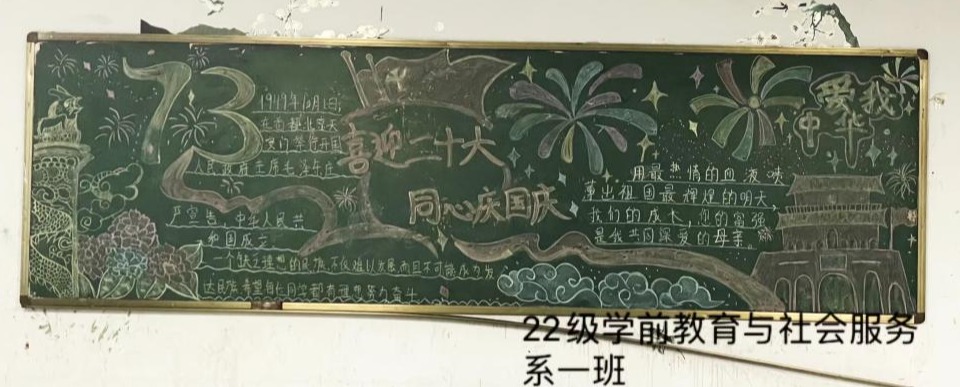 73
1949年10月1日,
在首都北京天
安门举行开国
人民政府主席毛泽东庄
严宣告,中华人民共
和国成立
一个缺乏理想的民族不仅难以发展而且不可能成为发
达民族希望每位同学都有理想努力奋斗
喜迎二十大
同心庆国庆
爱我
中华
用最热情的血液唤
第出祖国最辉煌的明天
我们的成长,您的富强
是我共同深爱的母亲。
22级学前教育与社会服务
系一班